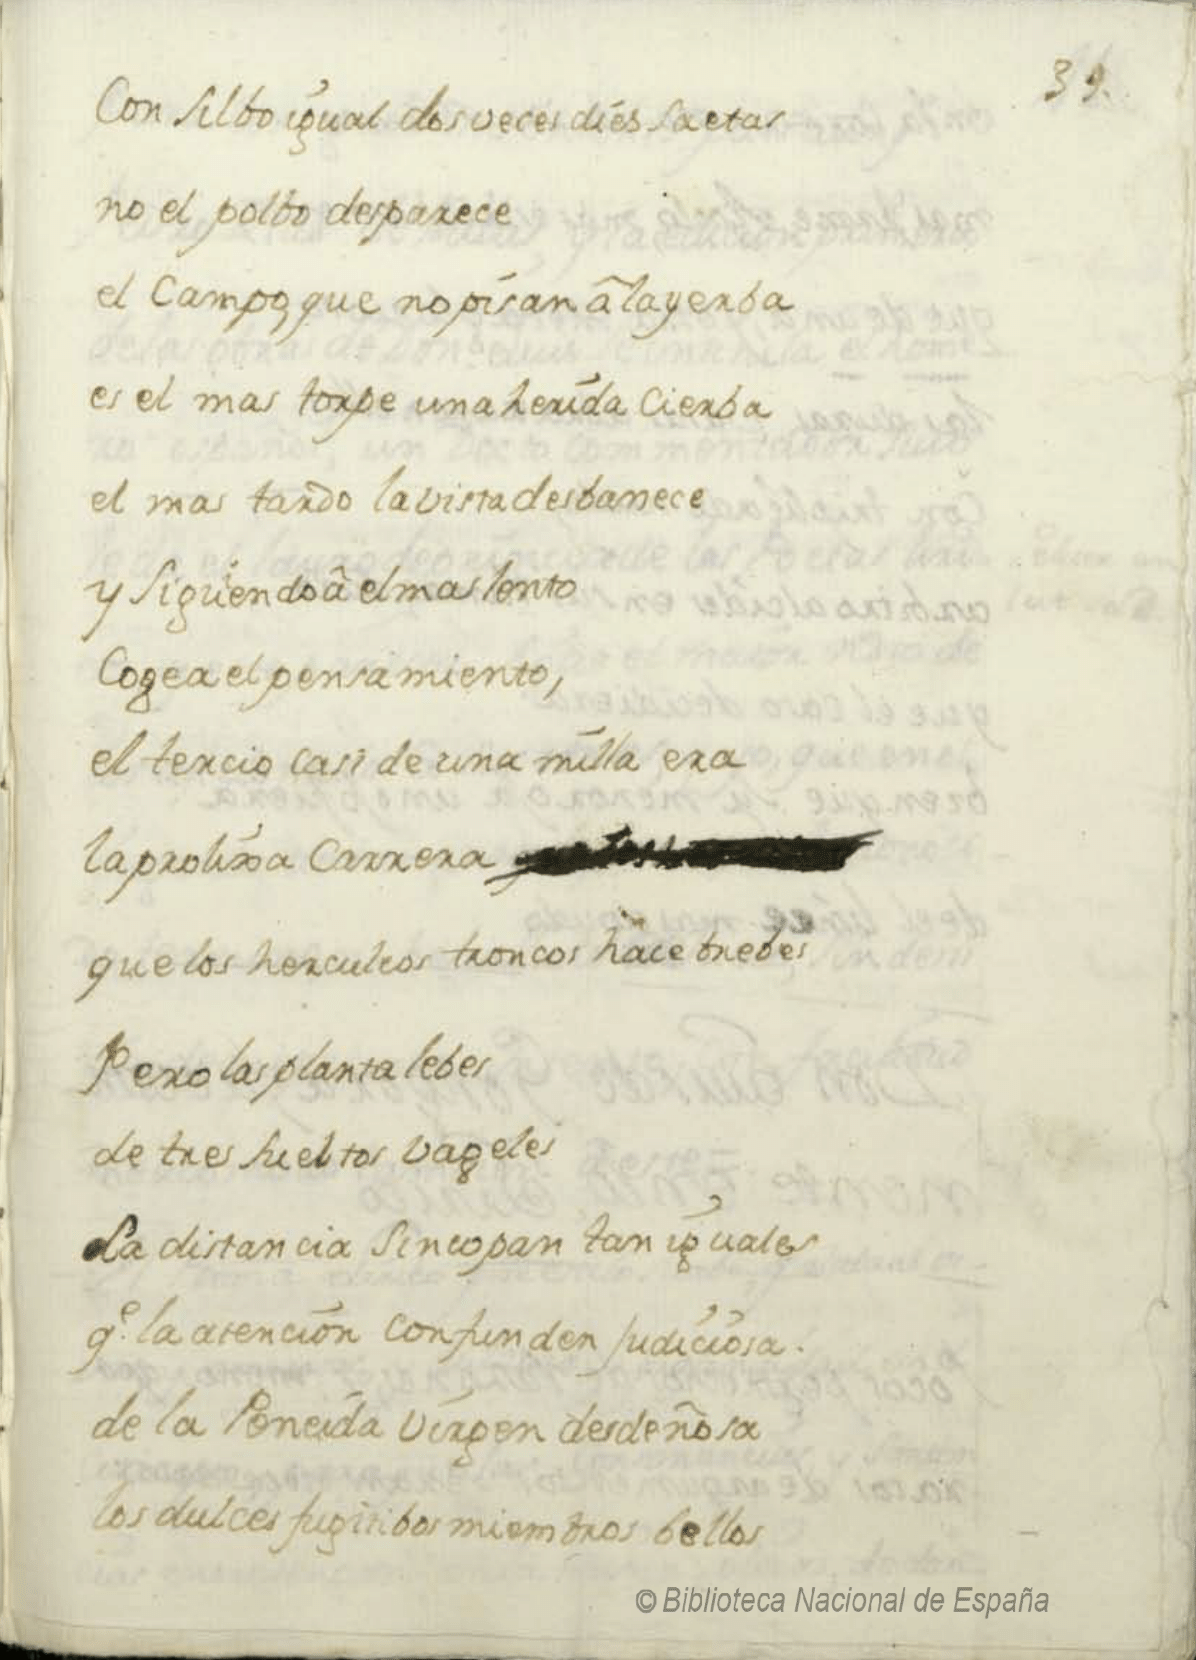 39.
Con silbo igual dos veces diés saetas
no el polbo desparece
el Campo, que no pisan â la yerba
es el mas torpe una herida Cierba
el mas tardo la vista desbanece
y siguiendo â el mas lento
Cogea el pensamiento,
el tercio casi de una milla era
la prolixa Carrera
que los herculeos troncos hace brebes
Pero las planta lebes
de tres sueltos vageles
La distancia sincopan tan iguales
q.e la atención confunden judiciosa.
de la Peneida Virgen desdeñosa
los dulces fugitibos miembros bellos
© Biblioteca Nacional de España